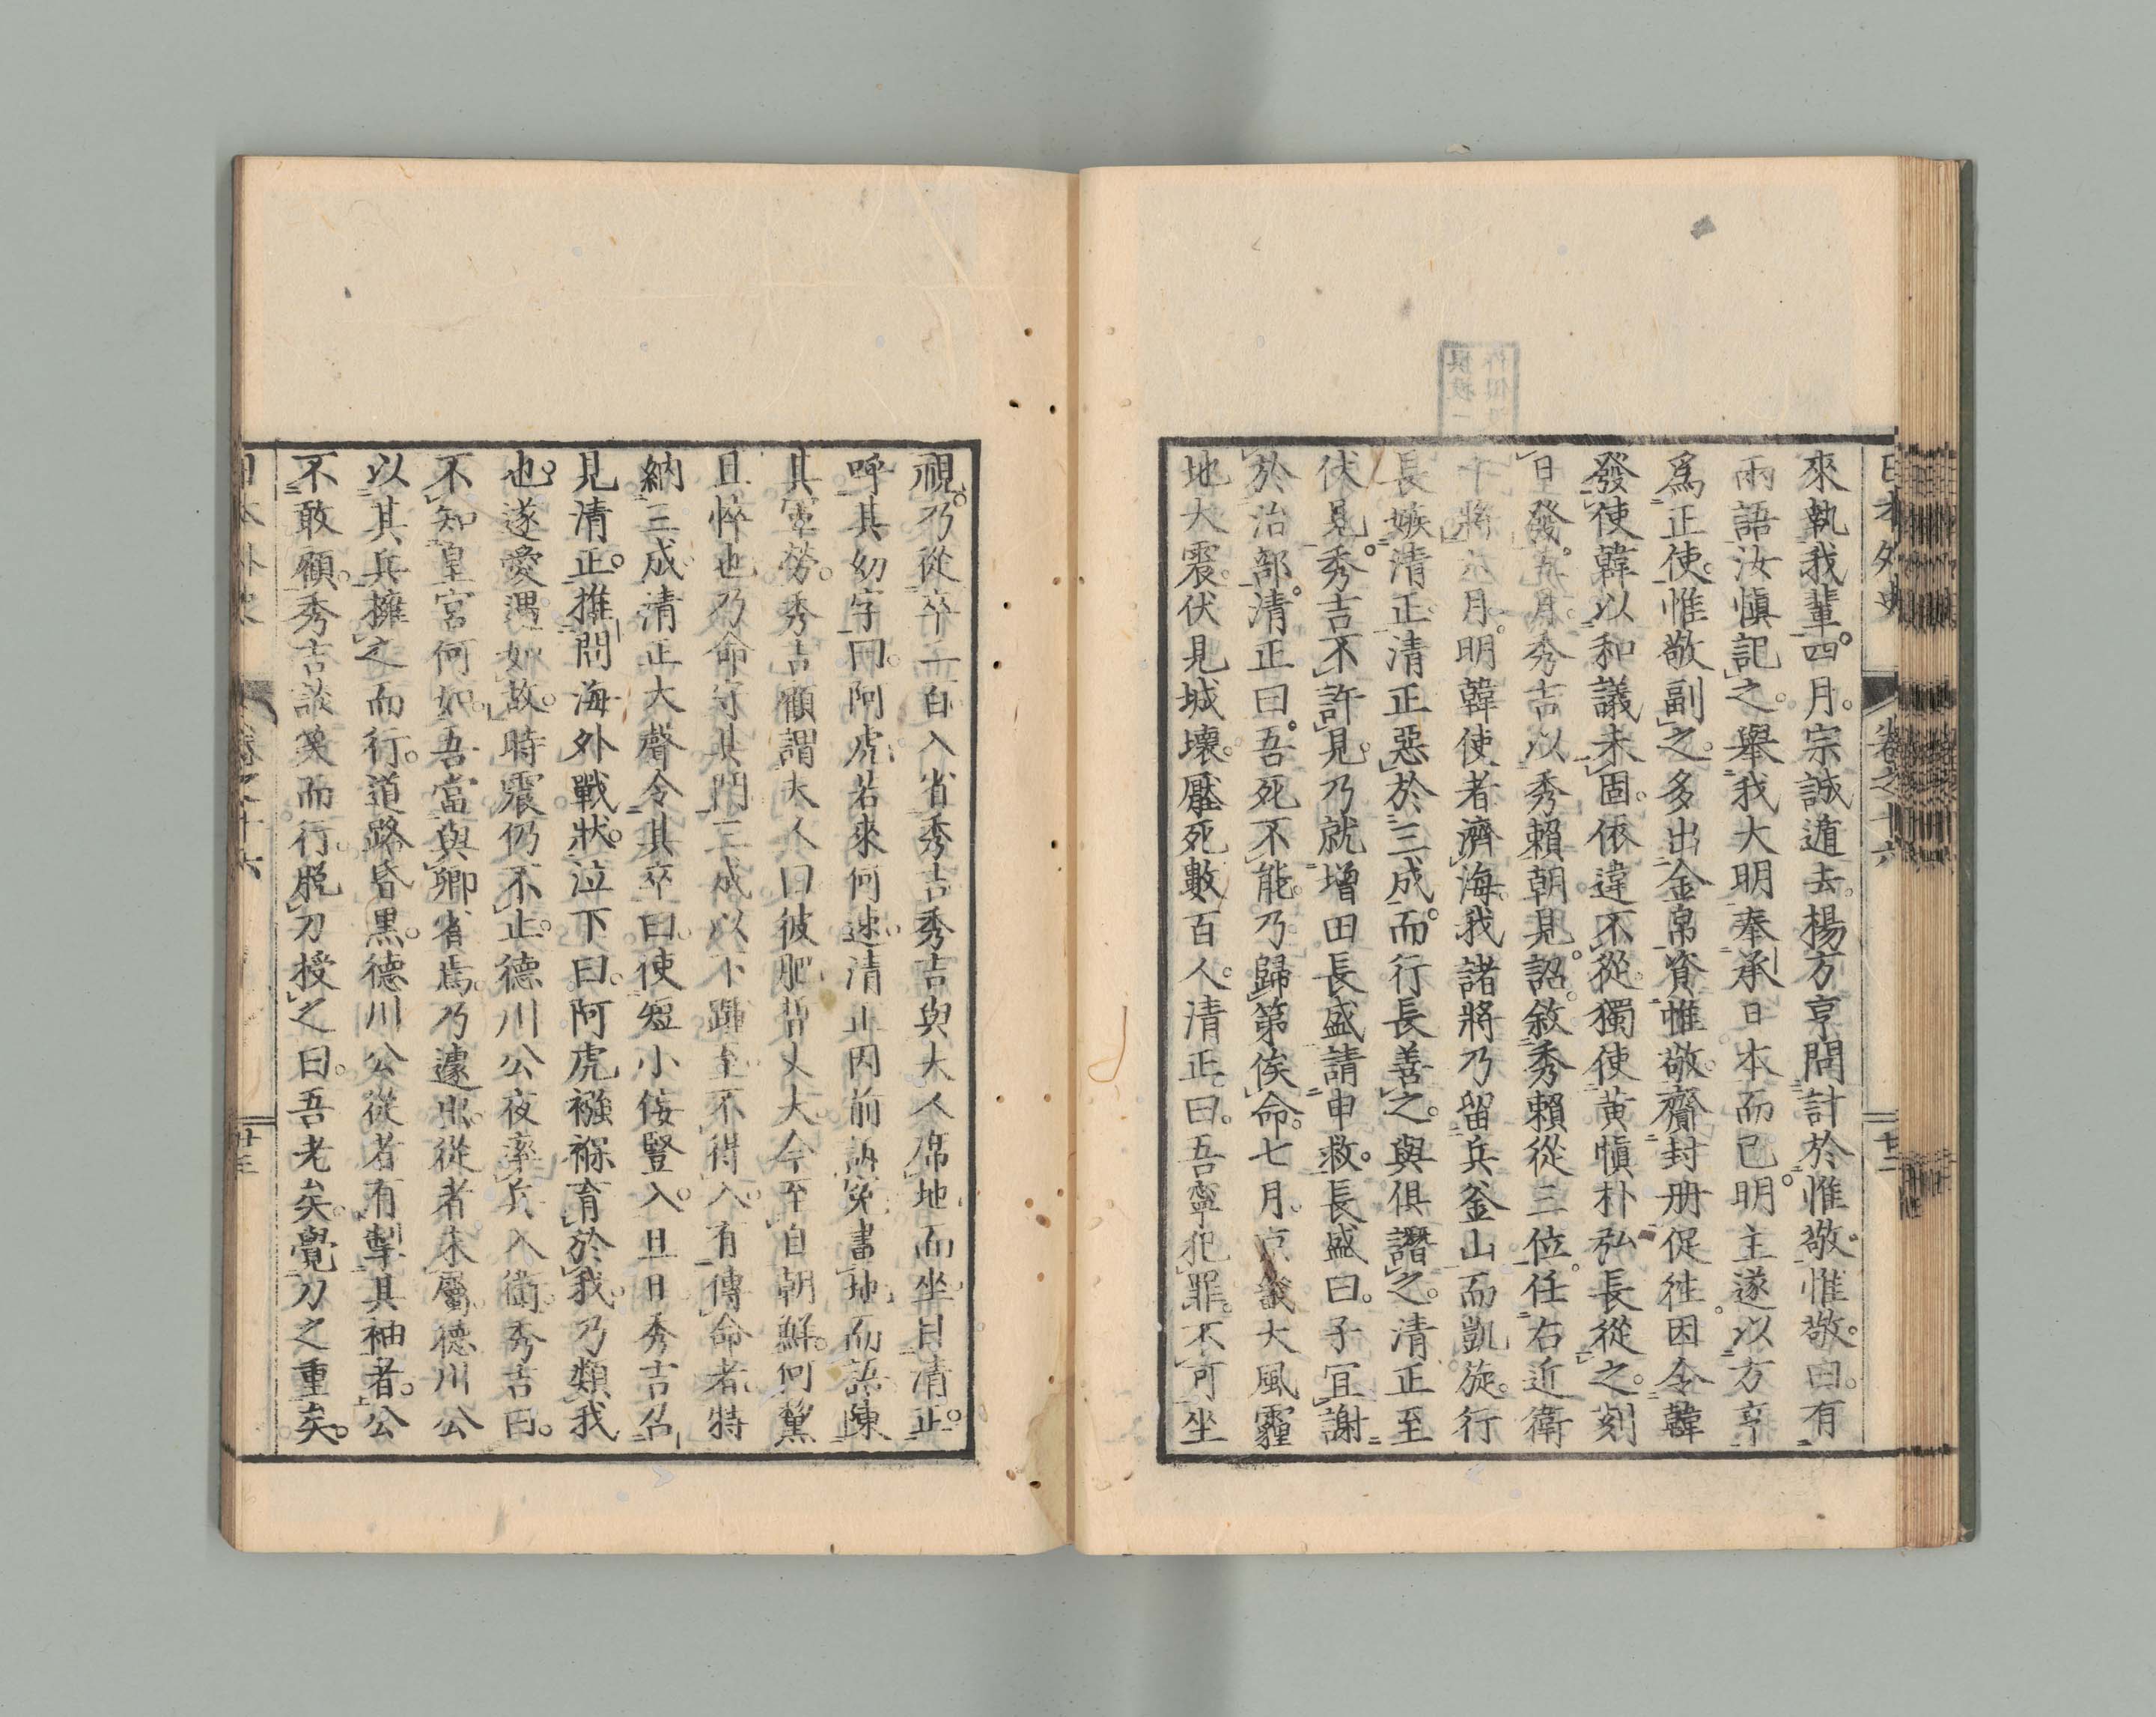 日本外史 卷之十六 廿二
來執我輩。四月。宗誠遁去。楊方亨問計於惟敬。惟敬曰。有
兩語汝愼記之。擧我大明奉承日本而已。明主遂以方亨
爲正使。惟敬副之。多出金帛資惟敬。齎封册促徃。因令韓
發使韓以和議未固。依違不從。獨使黄愼朴弘長從之。刻
日發。五月。秀吉以秀賴朝見。詔。敘秀賴從三位。任右近衛
中將。六月。明韓使者濟海。我諸將乃留兵釜山而凱旋。行
長嫉清正。清正惡於三成。而行長善之。與俱譖之。清正至
伏見。秀吉不許見。乃就增田長盛請申救。長盛曰。子宜謝
於治部。清正曰。吾死不能。乃歸第俟命。七月。京畿大風霾
地大震。伏見城壞。壓死數百人。清正曰。吾寧犯罪。不可坐
視。乃從卒二百入省秀吉秀吉與夫人席地而坐。目清正。
呼其幼字曰。阿虎若來何速。清正因前訴冤。書地而語。陳
其軍勞。秀吉顧謂夫人曰彼肥晳丈大。今至自朝鮮。何黧
且悴也。乃命守其門。三成以下踵至。不得入。有傳命者。特
納三成。清正大聲令其卒曰。使短小佞豎入。旦日秀吉召
見清正。推問海外戰狀。泣下曰。阿虎襁褓育於我。乃類我
也。遂愛遇如故。時震仍不止。德川公夜率兵入衞。秀吉曰。
不知皇宮何如。吾當與卿省焉。乃遽出。從者未屬。德川公
以其兵擁之而行。道路昏黒。德川公從者有掣其袖者。公
不敢顧。秀吉談笑而行。脱刀授之曰。吾老矣。覺刀之重矣。
日本外史 卷之十六 廿三